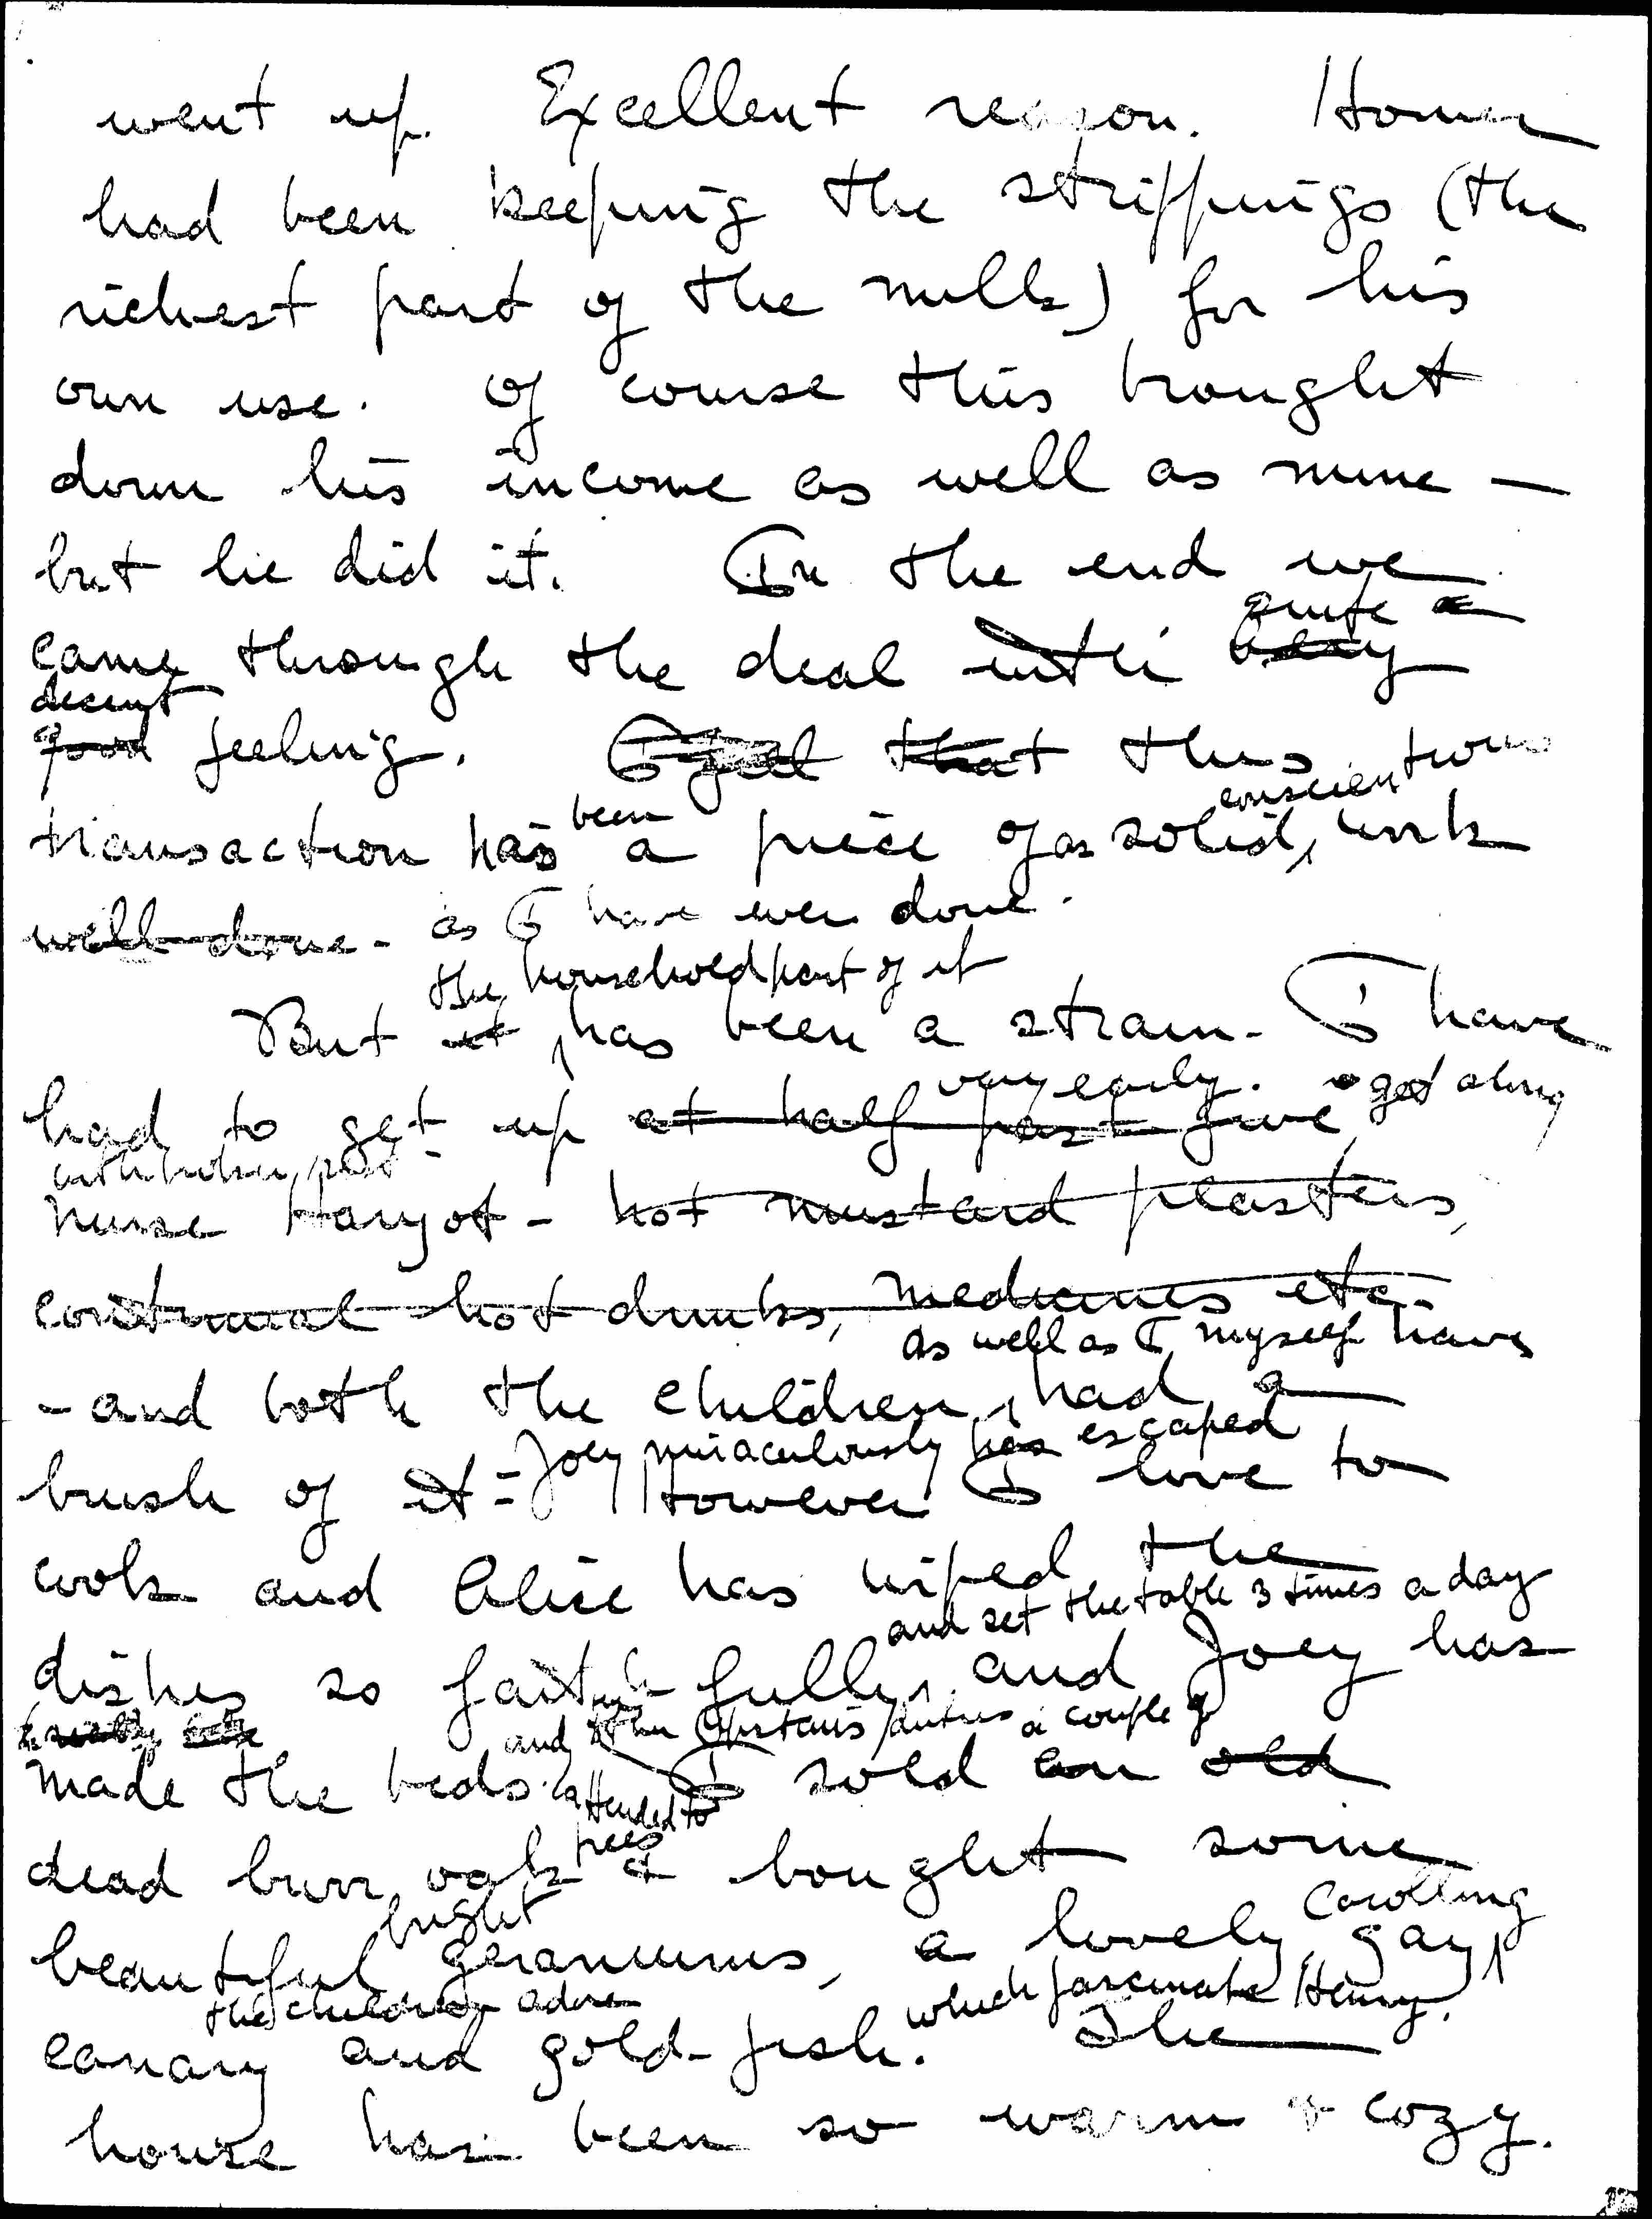 went up. Excellent reason. Homer
had been keeping the strippings (the
richest part of the milk) for his
own use. Of course this brought
down his income as well as mine —
but he did it. In the end we
quite a
came through the deal with
decent
good feeling. I feel that this
conscientious
been
transaction has a piece of as solid, work
well done - as I have ever done.
the household part of it
But it has been a strain - I have
very early. get along
had to get up at half past five,
nurse Margot - hot mustard plasters,
continual hot drinks, medicines etc.
as well as I myself have
- and both the children had a
Joey miraculously has escaped
brush of it - However I love to
cook and Alice has wiped the
and set the table 3 times a day
dishes so faithfully and Joey has
and other upstairs duties a couple of
made the beds. I sold an old
attended to
trees
dead burr oak & bought some
bright
carolling
beautiful geraniums, a lovely gay
the children adore
which fascinate Henry.
canary and gold-fish. The
house has been so warm & cozy.